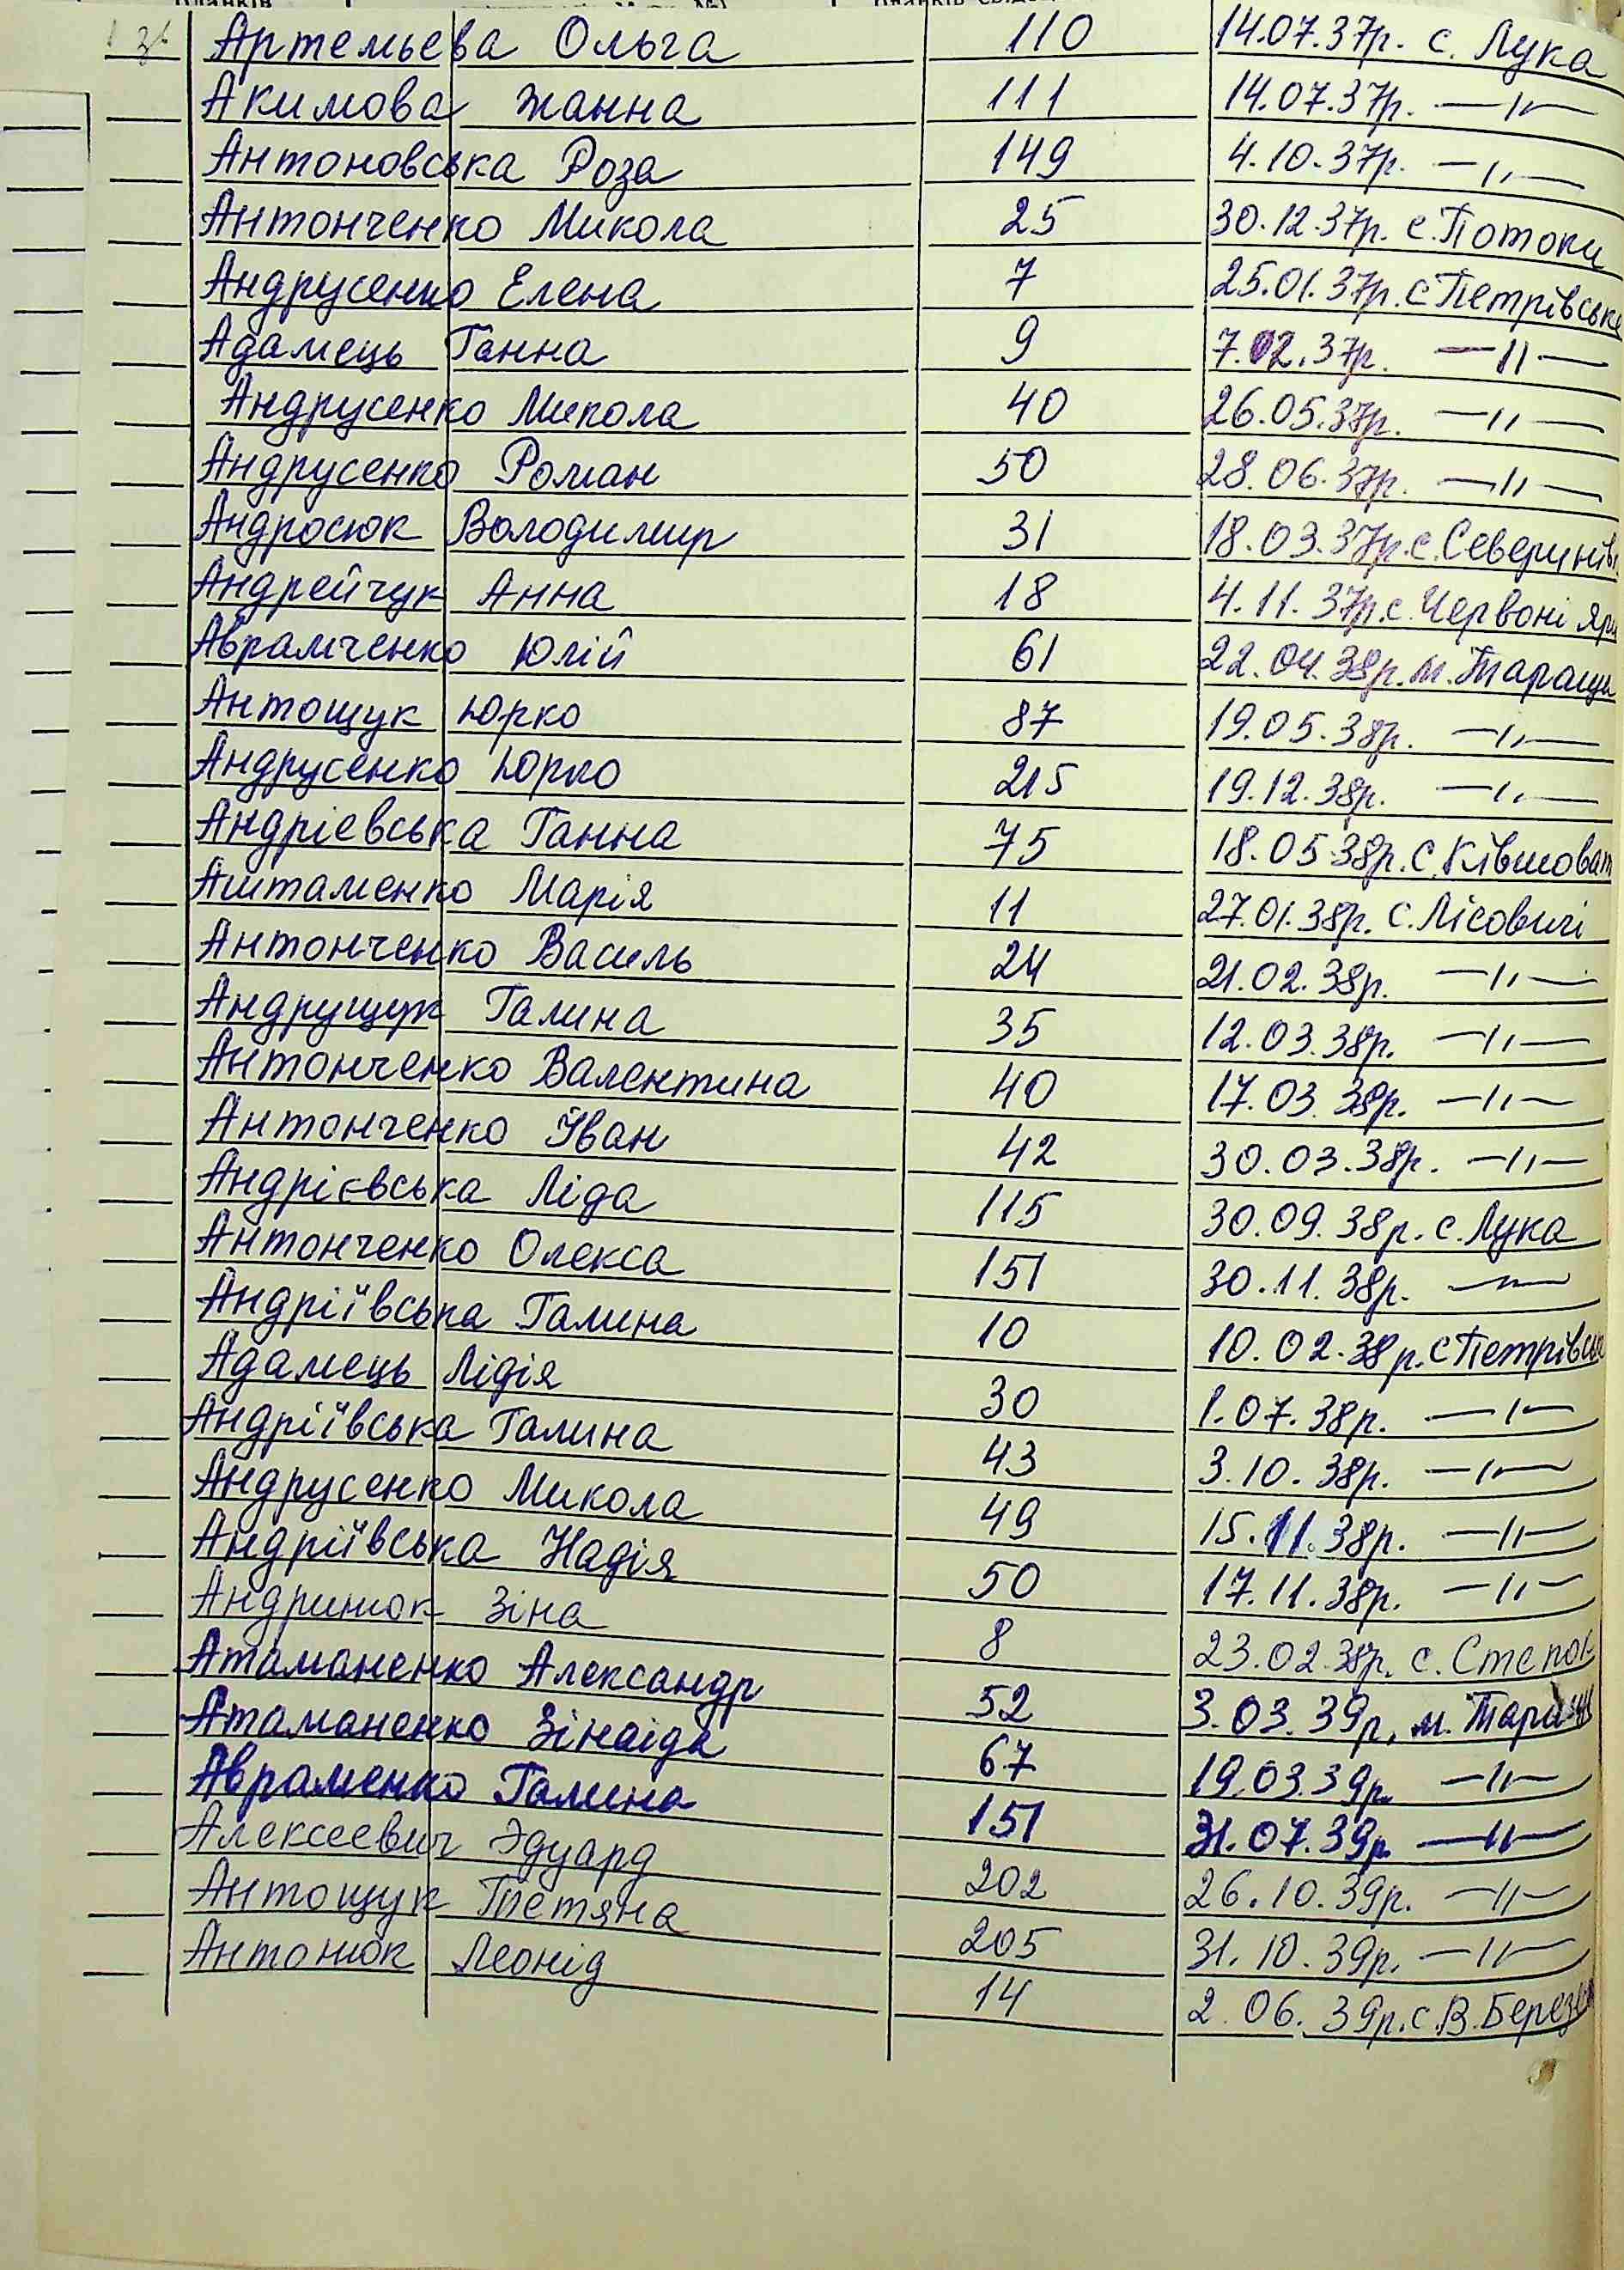 Артемьева Ольга 110 14.07.37р. с. Лука
Акимова Жанна 111 14.07.37р. —〃—
Антоновська Роза 149 4.10.37р. —〃—
Антонченко Микола 25 30.12.37р. с. Потоки
Андрусенко Елена 7 25.01.37р. с Петрівське
Адамець Ганна 9 7.02.37р. —〃—
Андрусенко Микола 40 26.05.37р. —〃—
Андрусенко Роман 50 28.06.37р. —〃—
Андросюк Володимир 31 18.03.37р. с. Северинів
Андрейчук Анна 18 4.11.37р. с. Червоні Яри
Аврамченко Юлій 61 22.04.38р. м. Таращ
Антощук Юрко 87 19.05.38р. —〃—
Андрусенко Юрко 215 19.12.38р. —〃—
Андріевська Ганна 75 18.05.38р. с. Ківшоват
Аштаменко Марія 11 27.01.38р. с. Лісовичі
Антонченко Василь 24 21.02.38р. —〃—
Андрущук Галина 35 12.03.38р. —〃—
Антонченко Валентина 40 17.03.38р. —〃—
Антонченко Іван 42 30.03.38р. —〃—
Андрієвська Ліда 115 30.09.38р. с. Лука
Антонченко Олекса 151 30.11.38р. —〃—
Андріївська Галина 10 10.02.38р. с Петрівськ
Адамець Лідія 30 1.07.38р. —〃—
Андріївська Галина 43 3.10.38р. —〃—
Андрусенко Микола 49 15.11.38р. —〃—
Андріївська Надія 50 17.11.38р. —〃—
Андринюк Зіна 8 23.02.38р. с. Степок
Атаманенко Александр 52 3.03.39р. м. Таращ
Атаманенко Зінаіда 67 19.03.39р. —〃—
Авраменко Галина 151 31.07.39р. —〃—
Алексеевич Эдуард 202 26.10.39р. —〃—
Антощук Тетяна 205 31.10.39р. —〃—
Антонюк Леонід 14 2.06.39р. с. В. Березян